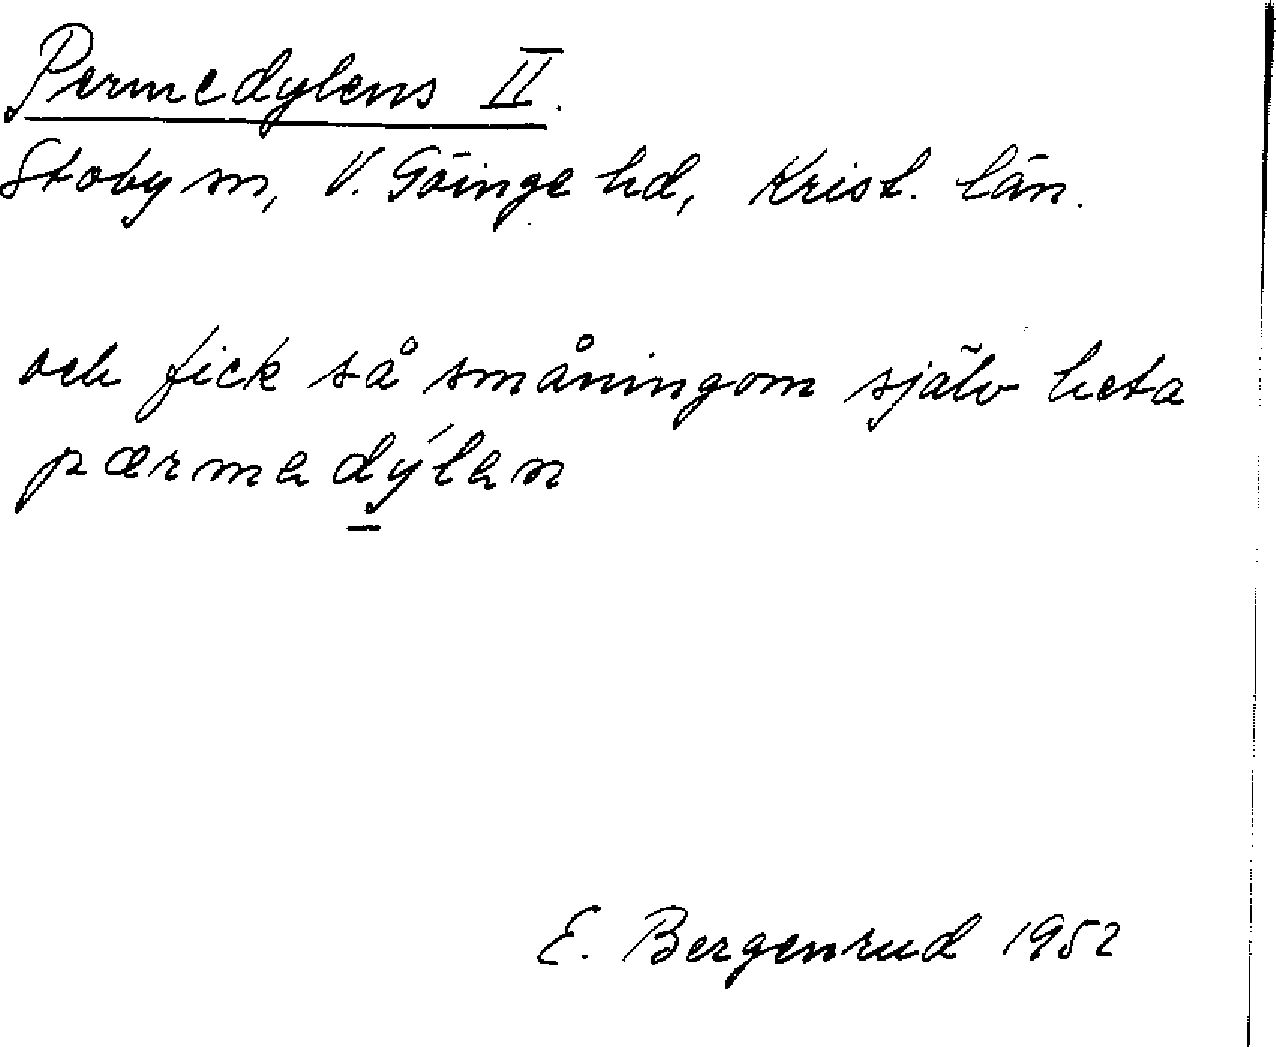 Permedylens II.
Stoby sn, V. Göinge hd, Krist. län.
och fick så småningom själv heta
pærmadýlan
E. Bergenrud 1952